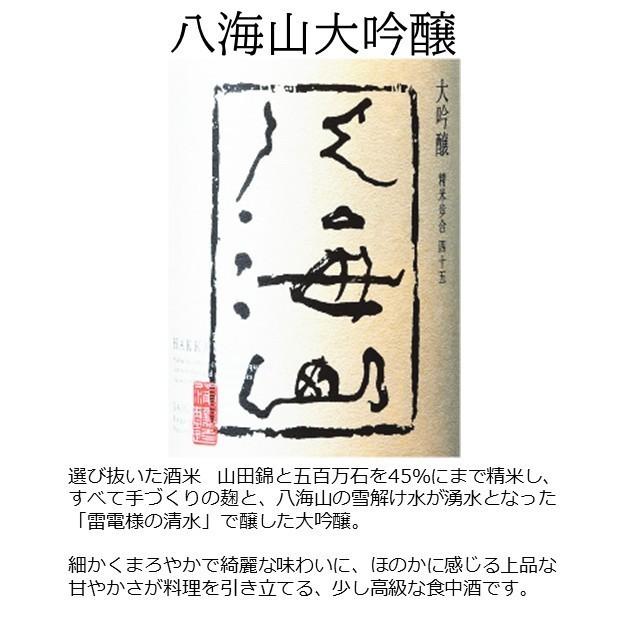 八海山大吟醸
大吟醸 精米歩合 四十五
八海山
HAKK
選び抜いた酒米 山田錦と五百万石を45%にまで精米し、
すべて手づくりの麹と、八海山の雪解け水が湧水となった
「雷電様の清水」で醸した大吟醸。
細かくまろやかで綺麗な味わいに、ほのかに感じる上品な
甘やかさが料理を引き立てる、少し高級な食中酒です。